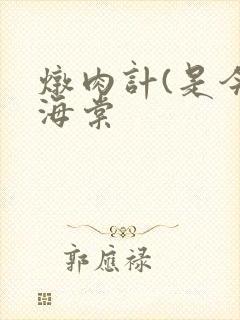 燉肉計(是今
海棠
郭應祿